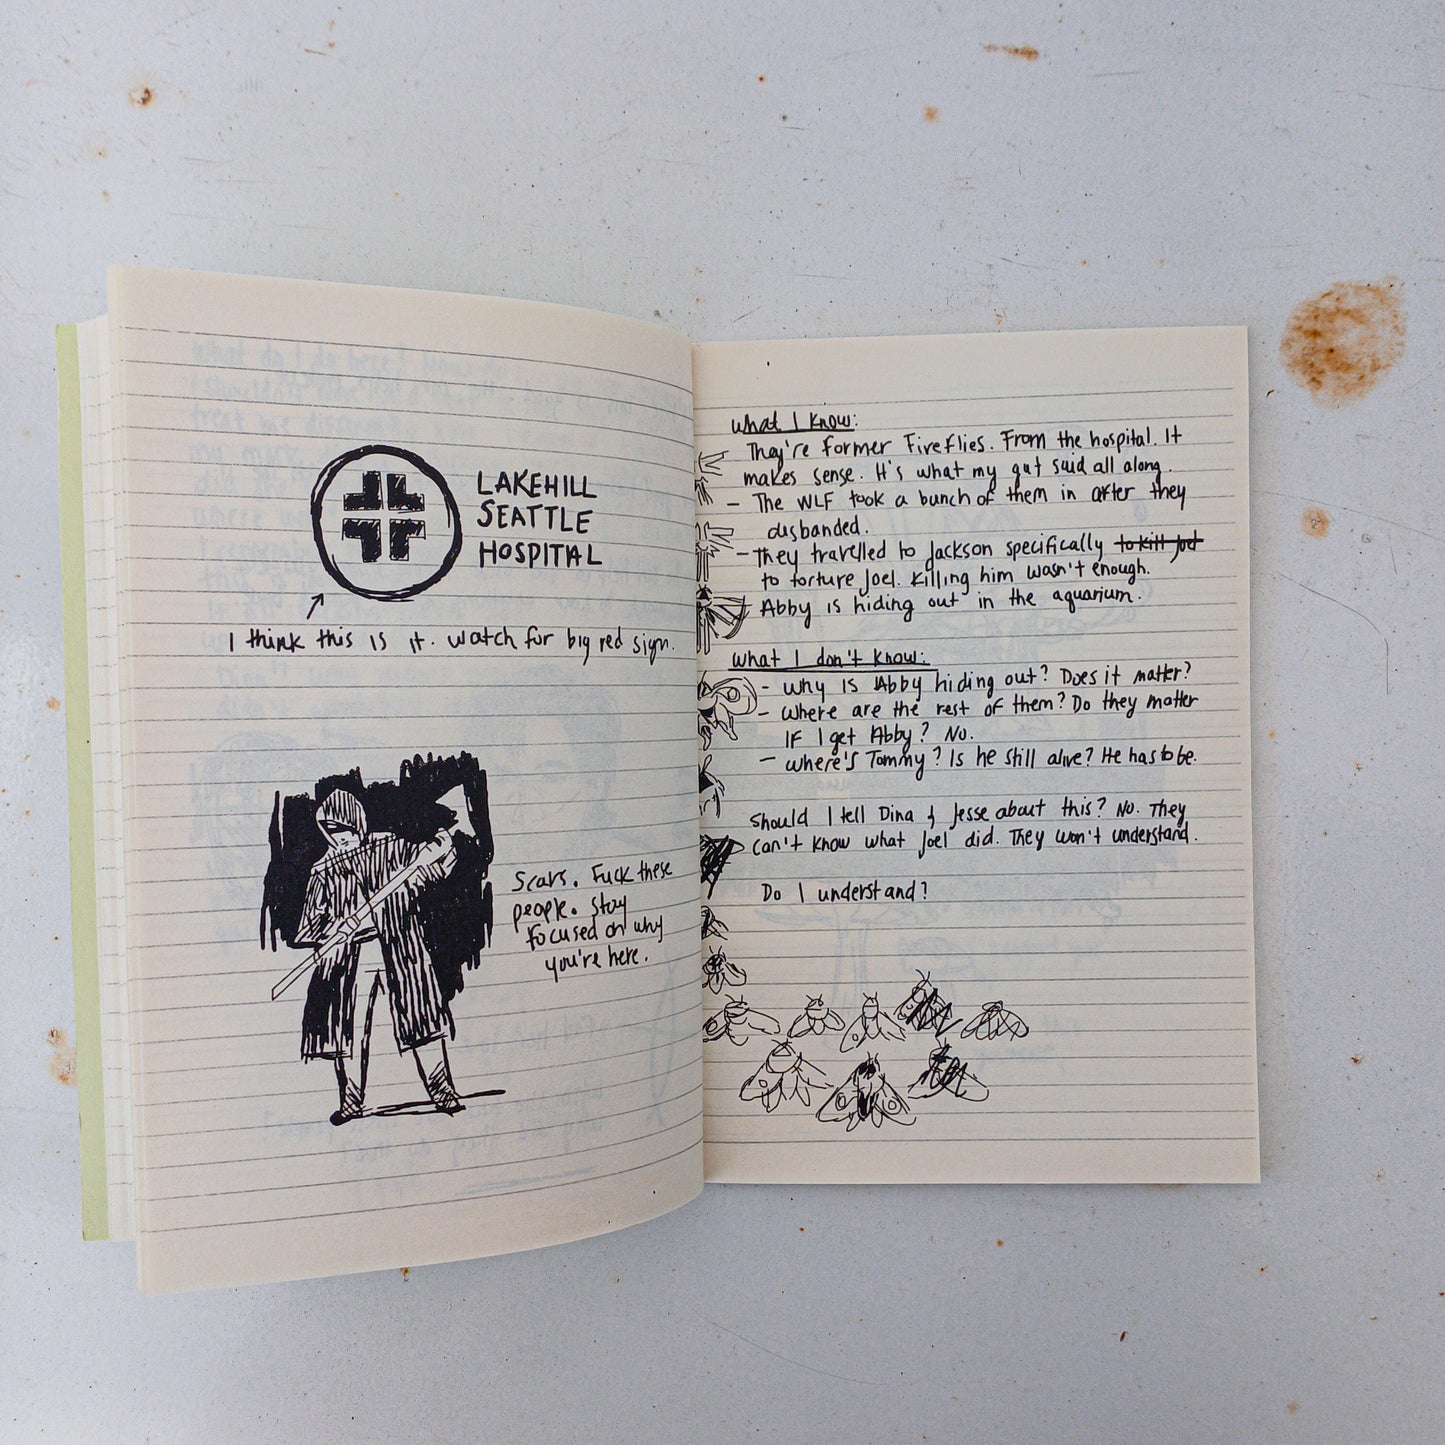 LAKEHILL
SEATTLE
HOSPITAL
I think this is it. Watch for big red sign.
Scars. Fuck these
people. Stay
focused on why
you're here.
What I know:
They're former Fireflies. From the hospital. It
makes sense. It's what my gut said all along.
- The WLF took a bunch of them in after they
disbanded.
- They travelled to Jackson specifically to kill Joel
to torture Joel. Killing him wasn't enough.
Abby is hiding out in the aquarium.
What I don't know:
- Why is Abby hiding out? Does it matter?
- Where are the rest of them? Do they matter
if I get Abby? No.
- Where's Tommy? Is he still alive? He has to be.
Should I tell Dina & Jesse about this? No. They
can't know what Joel did. They won't understand.
Do I understand?